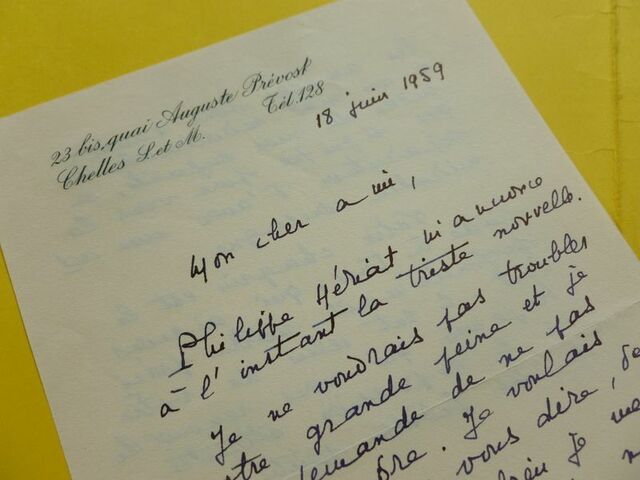 23 bis, quai Auguste Prévost
Chelles S.et M.
Tél.128
18 juin 1959
Mon cher ami,
Philippe Hériat m'annonce
à l'instant la triste nouvelle.
Je ne voudrais pas troubler
tre grande peine et je
demande de ne pas
dre. Je voulais
vous dire, de
je me